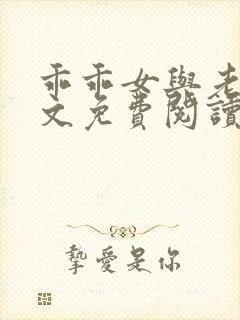 乖乖女與老
文免費閱讀
摯愛是你